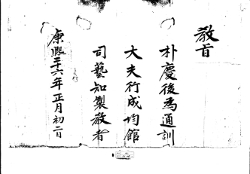 教旨
朴慶後爲通訓
大夫行成均館
司藝知製敎者
康熙二十六年正月初二日